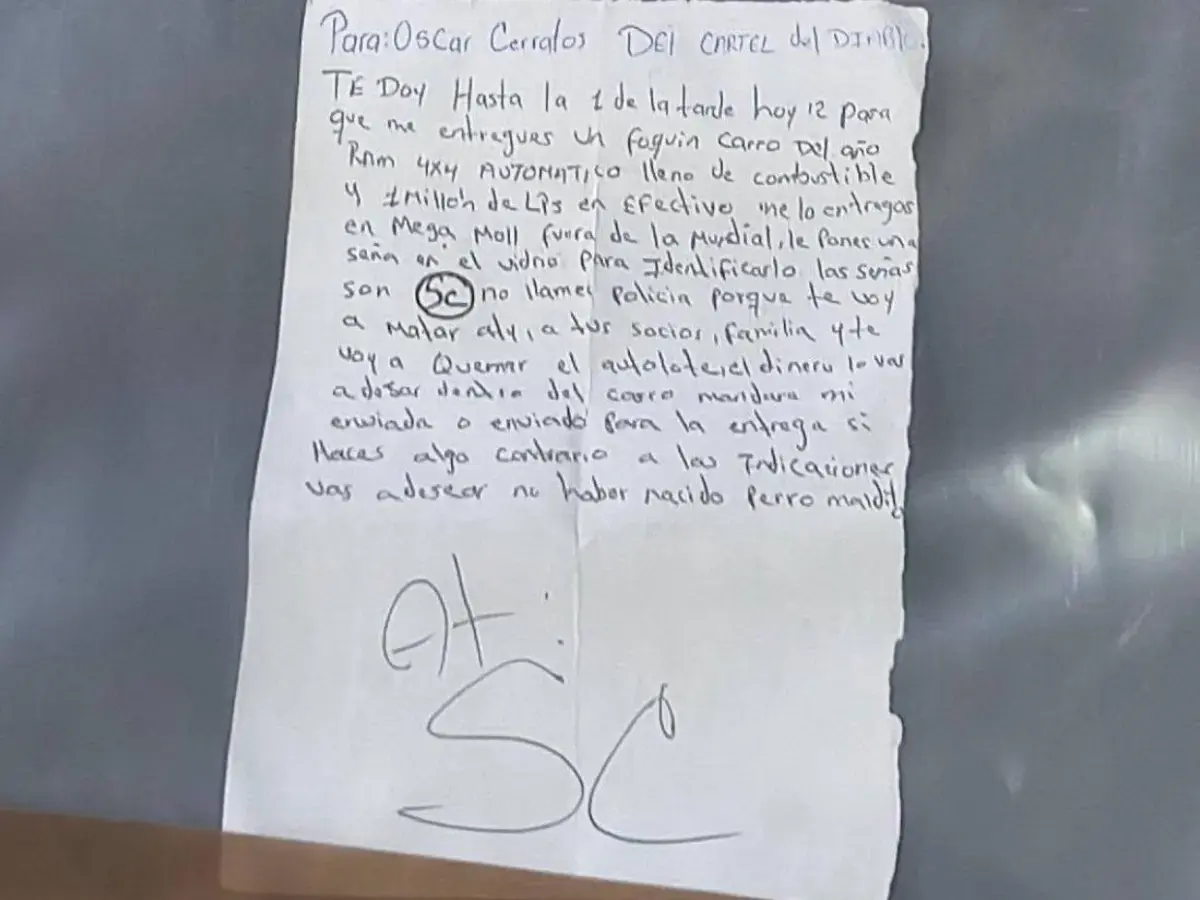 Para: Oscar Cerratos DEl CARTEL del DIABlo.
TE Doy Hasta la 1 de la tarde hoy 12 para
que me entregues un foquin carro Del año
Ram 4x4 AUTOMATICO lleno de combustible
y 1 Millon de LPs en EFectivo me lo entregas
en Mega Moll fuera de la Mundial, le Pones una
seña en el vidrio para Identificarlo las señas
son Sc no llames Policia porque te voy
a Matar aty, a tus socios, familia y te
voy a Quemar el autolote, el dinero lo vas
a dejar dentro del carro mandare mi
enviada o enviado para la entrega si
Haces algo contrario a las Indicaciones
vas adesear no haber nacido Perro maldito
At:
SC